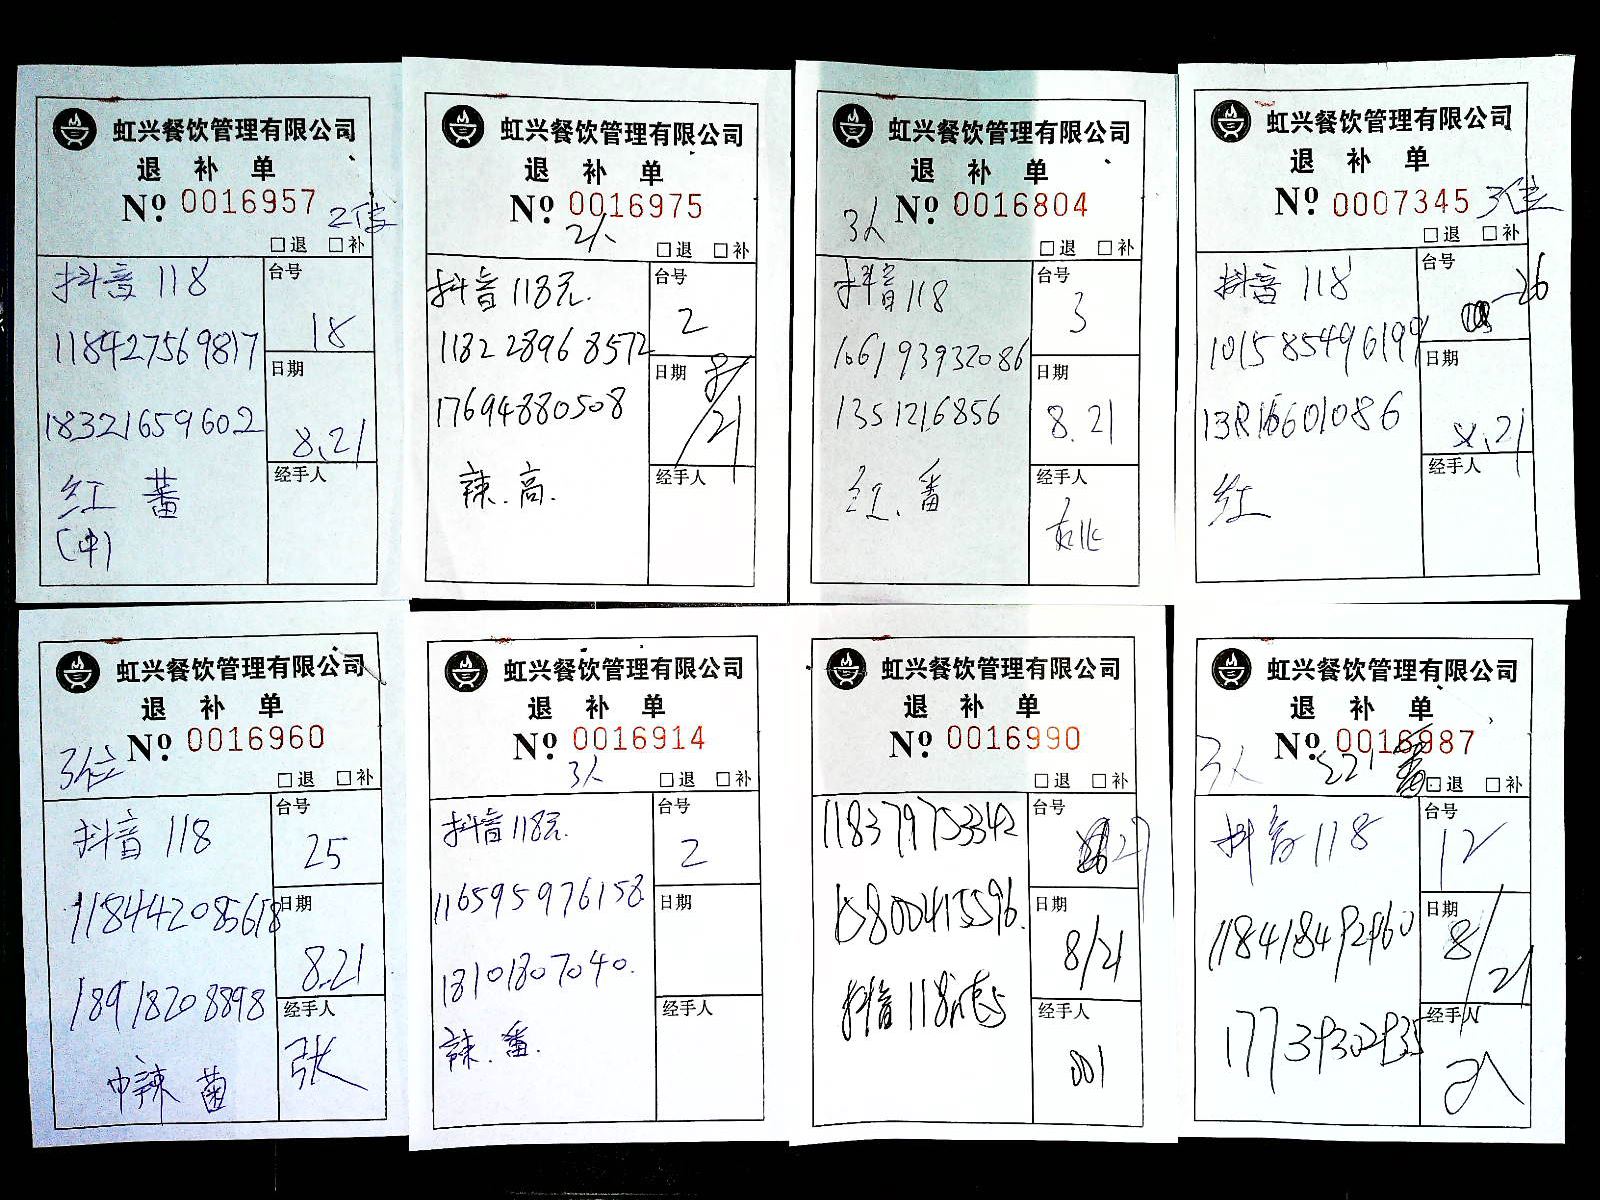 虹兴餐饮管理有限公司
退 补 单
№ 0016957
2位
□退 □补
抖音 118
台号
18
118427569817
日期
18321659602
8.21
经手人
红 蕃
(中)
虹兴餐饮管理有限公司
退 补 单
№ 0016975
2人
□退 □补
抖音 118元.
台号
2
118228968572
日期
8/21
17694880508
经手人
辣.高.
虹兴餐饮管理有限公司
退 补 单
№ 0016804
3人
□退 □补
抖音 118
台号
3
106193932086
日期
1351216856
8.21
经手人
红.番
虹兴餐饮管理有限公司
退 补 单
№ 0007345
3位
□退 □补
抖音 118
台号
26
101585496199
日期
8.21
经手人
红
虹兴餐饮管理有限公司
退 补 单
№ 0016960
3位
□退 □补
抖音 118
台号
25
118442085618
日期
8.21
18918208898
经手人
张
中辣 菌
虹兴餐饮管理有限公司
退 补 单
№ 0016914
3人
□退 □补
抖音118元.
台号
2
116595976158
日期
18101807040.
经手人
辣.番.
虹兴餐饮管理有限公司
退 补 单
№ 0016990
□退 □补
118379753342
台号
27
15800415596.
日期
8/21
抖音118
经手人
001
虹兴餐饮管理有限公司
退 补 单
№ 0016987
3人
□退 □补
抖音118
台号
12
118418492960
日期
8/21
17739302935
经手人